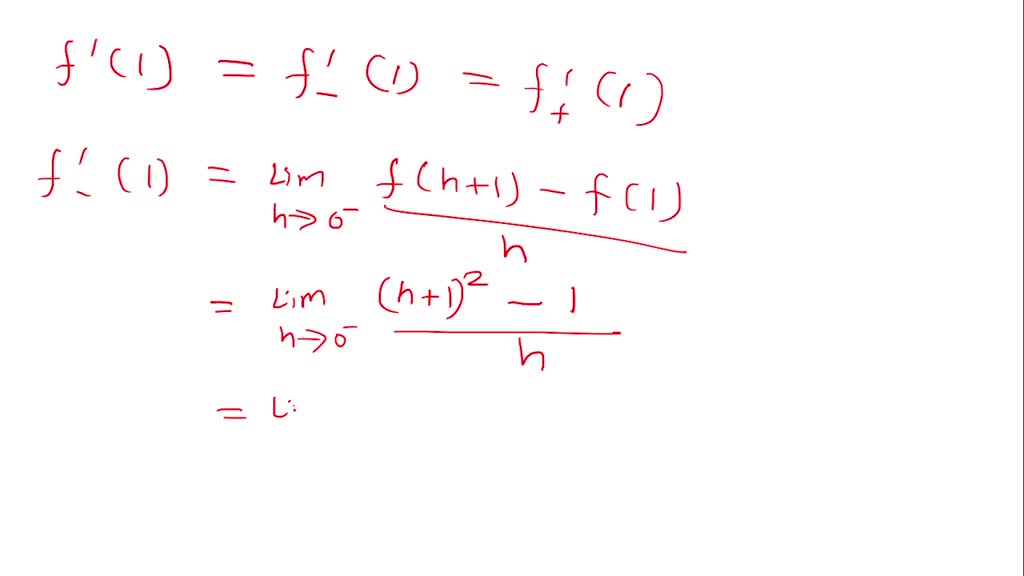 f'(1) = f'₋(1) = f'₊(1)
f'₋(1) = Lim h→0⁻ f(h+1) - f(1) / h
= Lim h→0⁻ (h+1)² - 1 / h
= Li